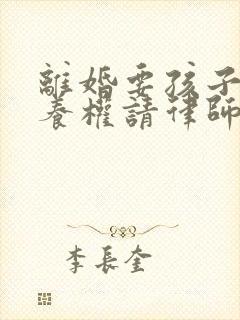 離婚要孩子
養權請律師
李長奎